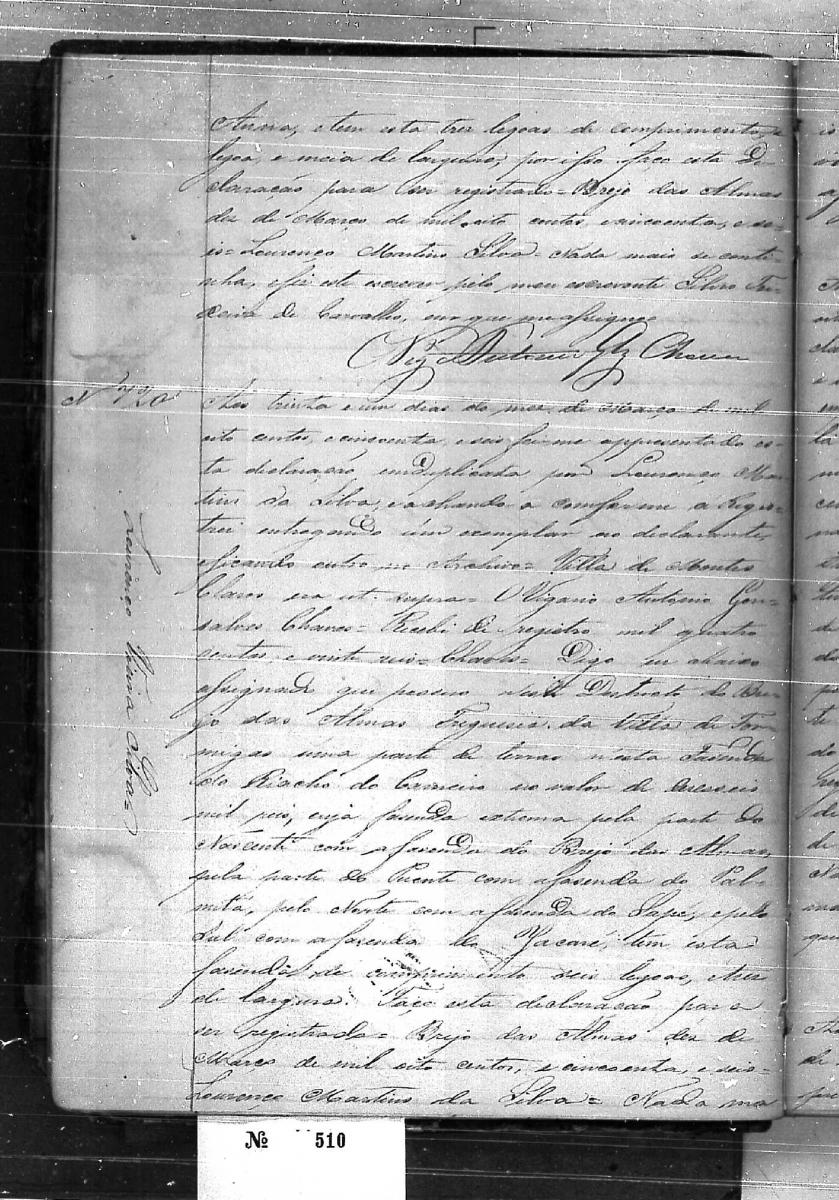 Anna, e tem esta tres legoas de comprimento, e
legoa, e meia de largura, por isso faço esta De=
claração para ser registrado= Brejo das Almas
dez de Março de mil oito centos, e cincoenta, e se=
is= Lourenço Martins Silva= Nada mais se conti=
nha, e fiz este escrever pelo meu escrevente Silvo Tei=
xeira de Carvalho, em que me assigno=
Antonio Glz Chaves
Nº
Aos trinta e um dias do mes de Março de mil
oito centos, e cincoenta, e seis foi me appresentado es=
ta declaração em duplicata por Lourenço Mar=
tins da Silva, e achando a comforme a Regis=
trei entregando úm exemplar ao declarante,
e ficando outro no Archivo= Villa de Montes
Claros era ut supra= O Vigario Antonio Gon=
salves Chaves= Recebi de registro mil quatro
centos, e vinte reis= Chaves= Digo eu abaixo
assignado que possuo n'este Destricto do Bre=
jo das Almas Freguesia da Villa de For=
migas uma parte de terras n'esta Fasenda
do Riacho do Carneiro no valor de deserseis
mil reis, cuja fasenda extrema pela parte do
Nascente com a fasenda do Brejo das Almas,
pela parte do Puente com a fasenda do Pal=
mitá, pelo Norte com a fasenda do Sapé, e pello
Sul com a fasenda do Jacaré, tem esta
fasenda de comprimento seis legoas, e tres
de largura. Faço esta declaração para
ser registrado= Brejo das Almas dez de
Março de mil oito centos, e cincoenta, e seis=
Lourenço Martins da Silva= Nada ma
Lourenço Silva=
Nº 510